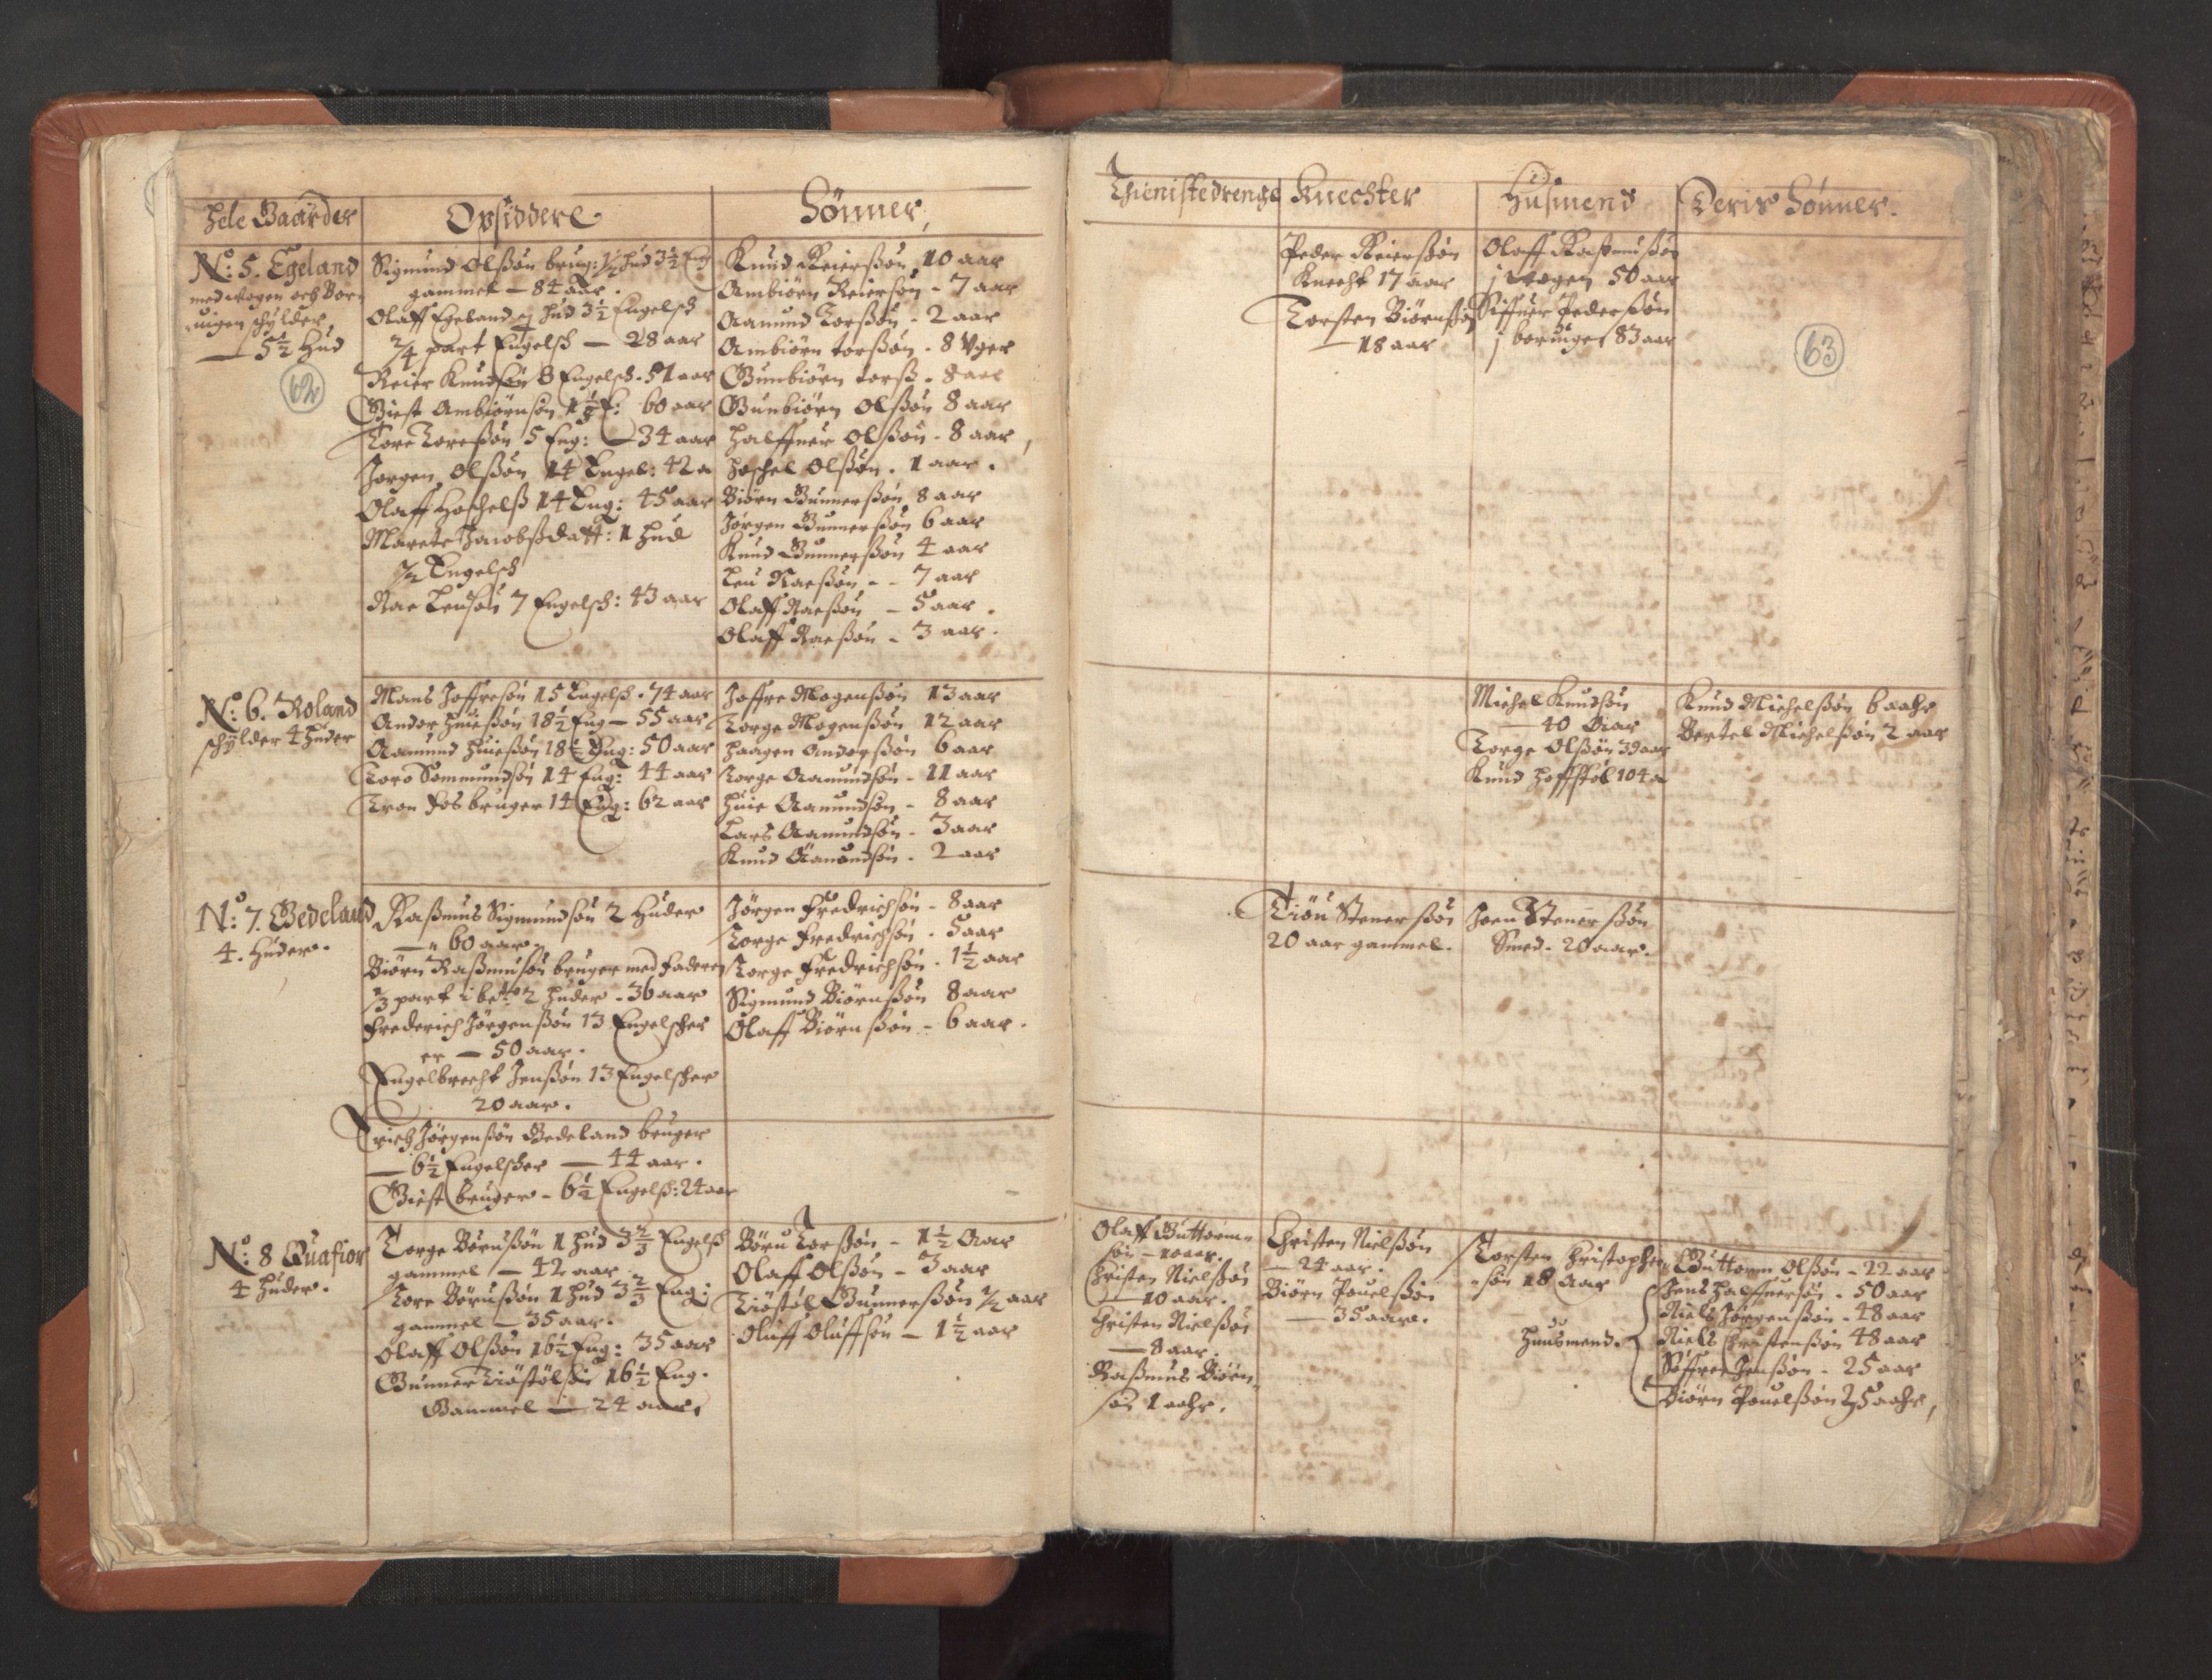 Hele Gaarder
Opsiddere
Sønner,
N: 5. Egeland
med Wogen och Bor-
ingen schylder
— 5½ Hud
62
Sigmund Olsøn brug: ½ hud 3½ Eng
gammel — 84 aar.
Olaff Egeland hud 3½ Engelsch
¼ part Engelsch — 28 aar
Reier Knudsøn 8 Engelsch. 51 aar
Giest Ambiørnsøn E: 60 aar
Tore Toresøn 5 Eng: — 34 aar
Jørgen Olsøn 14 Engel: 42 a
Olaff Hoschels 14 Eng: 45 aar
Marete Jacobsdatt: 1 hud
½ Engelsch
Rae Leusøn 7 Engelsch: 43 aar
Knud Reiersøn 10 aar
Ambiørn Reiersøn - 7 aar
Aamund Torsøn - 2 aar
Ambiørn torsøn - 8 Vger
Gunbiørn tors. 8 aar
Gunbiørn Olsøn 8 aar
Halffuer Olsøn - 8 aar,
Hoschel Olsøn. 1 aar.
Biørn Gunnersøn 8 aar
Jørgen Gunnersøn 6 aar
Knud Gunnersøn 4 aar
Leu Raesøn - - 7 aar
Olaff Raesøn - 5 aar.
Olaff Raesøn - 3 aar.
N: 6. Roland
schylder 4 huder
Mans Joffresøn 15 Engelsch. 74 aar
Andor Huiesøn 18½ Eng — 55 aar
Aamund Huiesøn 18½ Eng: 50 aar
Tore Sommundsøn 14 Eng: 44 aar
Tron Fos bruger 14 Eng: 62 aar
Joffre Mogensøn 13 aar
Torge Mogensøn 12 aar
Haagen Andorsøn 6 aar
Torge Aamundsøn - 11 aar
Huie Aamundsøn - 8 aar
Lars Aamundsøn - 3 aar
Knud Aamundsøn - 2 aar
N: 7. Gedeland
4. Huder.
Rasmus Sigmundsøn 2 Huder
— 60 aar
Biørn Rasmusøn bruger med faderen
⅓ part i be:te 2 huder - 36 aar
Frederich Jørgensøn 13 Engelscher
er — 50 aar.
Engelbrecht Jensøn 13 Engelscher
20 aar.
Erich Jørgensøn Gedeland bruger
— 6½ Engelscher — 44 aar.
Giest bruger - 6½ Engelsch: 24 aar
Jørgen Fredrichsøn - 8 aar
Torge Fredrichsøn - 5 aar
Torge Fredrichsøn - 1½ aar
Sigmund Biørnsøn 8 aar
Olaff Biørnsøn - 6 aar.
N: 8 Quafior
4 huder.
Torge Børnsøn 1 hud 3⅔ Engelsch
gammel — 42 aar
Tore Børnsøn 1 hud 3⅔ Eng:
gammel — 35 aar.
Olaff Olsøn 16½ Eng: 35 aar
Gunner Tiøstølsøn 16½ Eng.
Gammel — 24 aar,
Børn Torsøn - 1½ Aar
Olaff Olsøn - 3 aar
Tiøstøl Gunnersøn ½ aar
Oluff Oluffsøn - 1½ aar
Thienistedrenge
Knechter
Husmend
Deris Sønner.
Peder Reiersøn
Knecht 17 aar
Torsten Biørnsøn
— 18 aar
Olaff Rasmusøn
j Wogen 50 aar
Siffuer Pedersøn
j boringen 83 aar
63
Michel Knudsøn
— 40 Aar
Torge Olsøn 39 aar
Knud 104 a
Knud Michelsøn 6 aahr
Bertel Michelsøn 2 aar
Tiøn Stenersøn
20 aar gammel.
Joen Stenersøn
Smed. 20 aar.
Olaff Guttorm-
søn — 10 aar.
Christen Nielsøn
— 10 aar.
Christen Nielsøn
— 8 aar.
Rasmus Biørn-
søn 1 aahr.
Christen Nielsøn
— 24 aar.
Biørn Pouelsøn
— 35 aar.
Torsten Christopher-
søn 18 Aar
Huusmend.
Guttorm Olsøn - 22 aar
Jens Halffuersøn - 50 aar
Niels Jørgensøn - 48 aar
Niels Christensøn 48 aar
Søffren Jensøn - 25 aar
Biørn Pouelsøn 35 aahr,